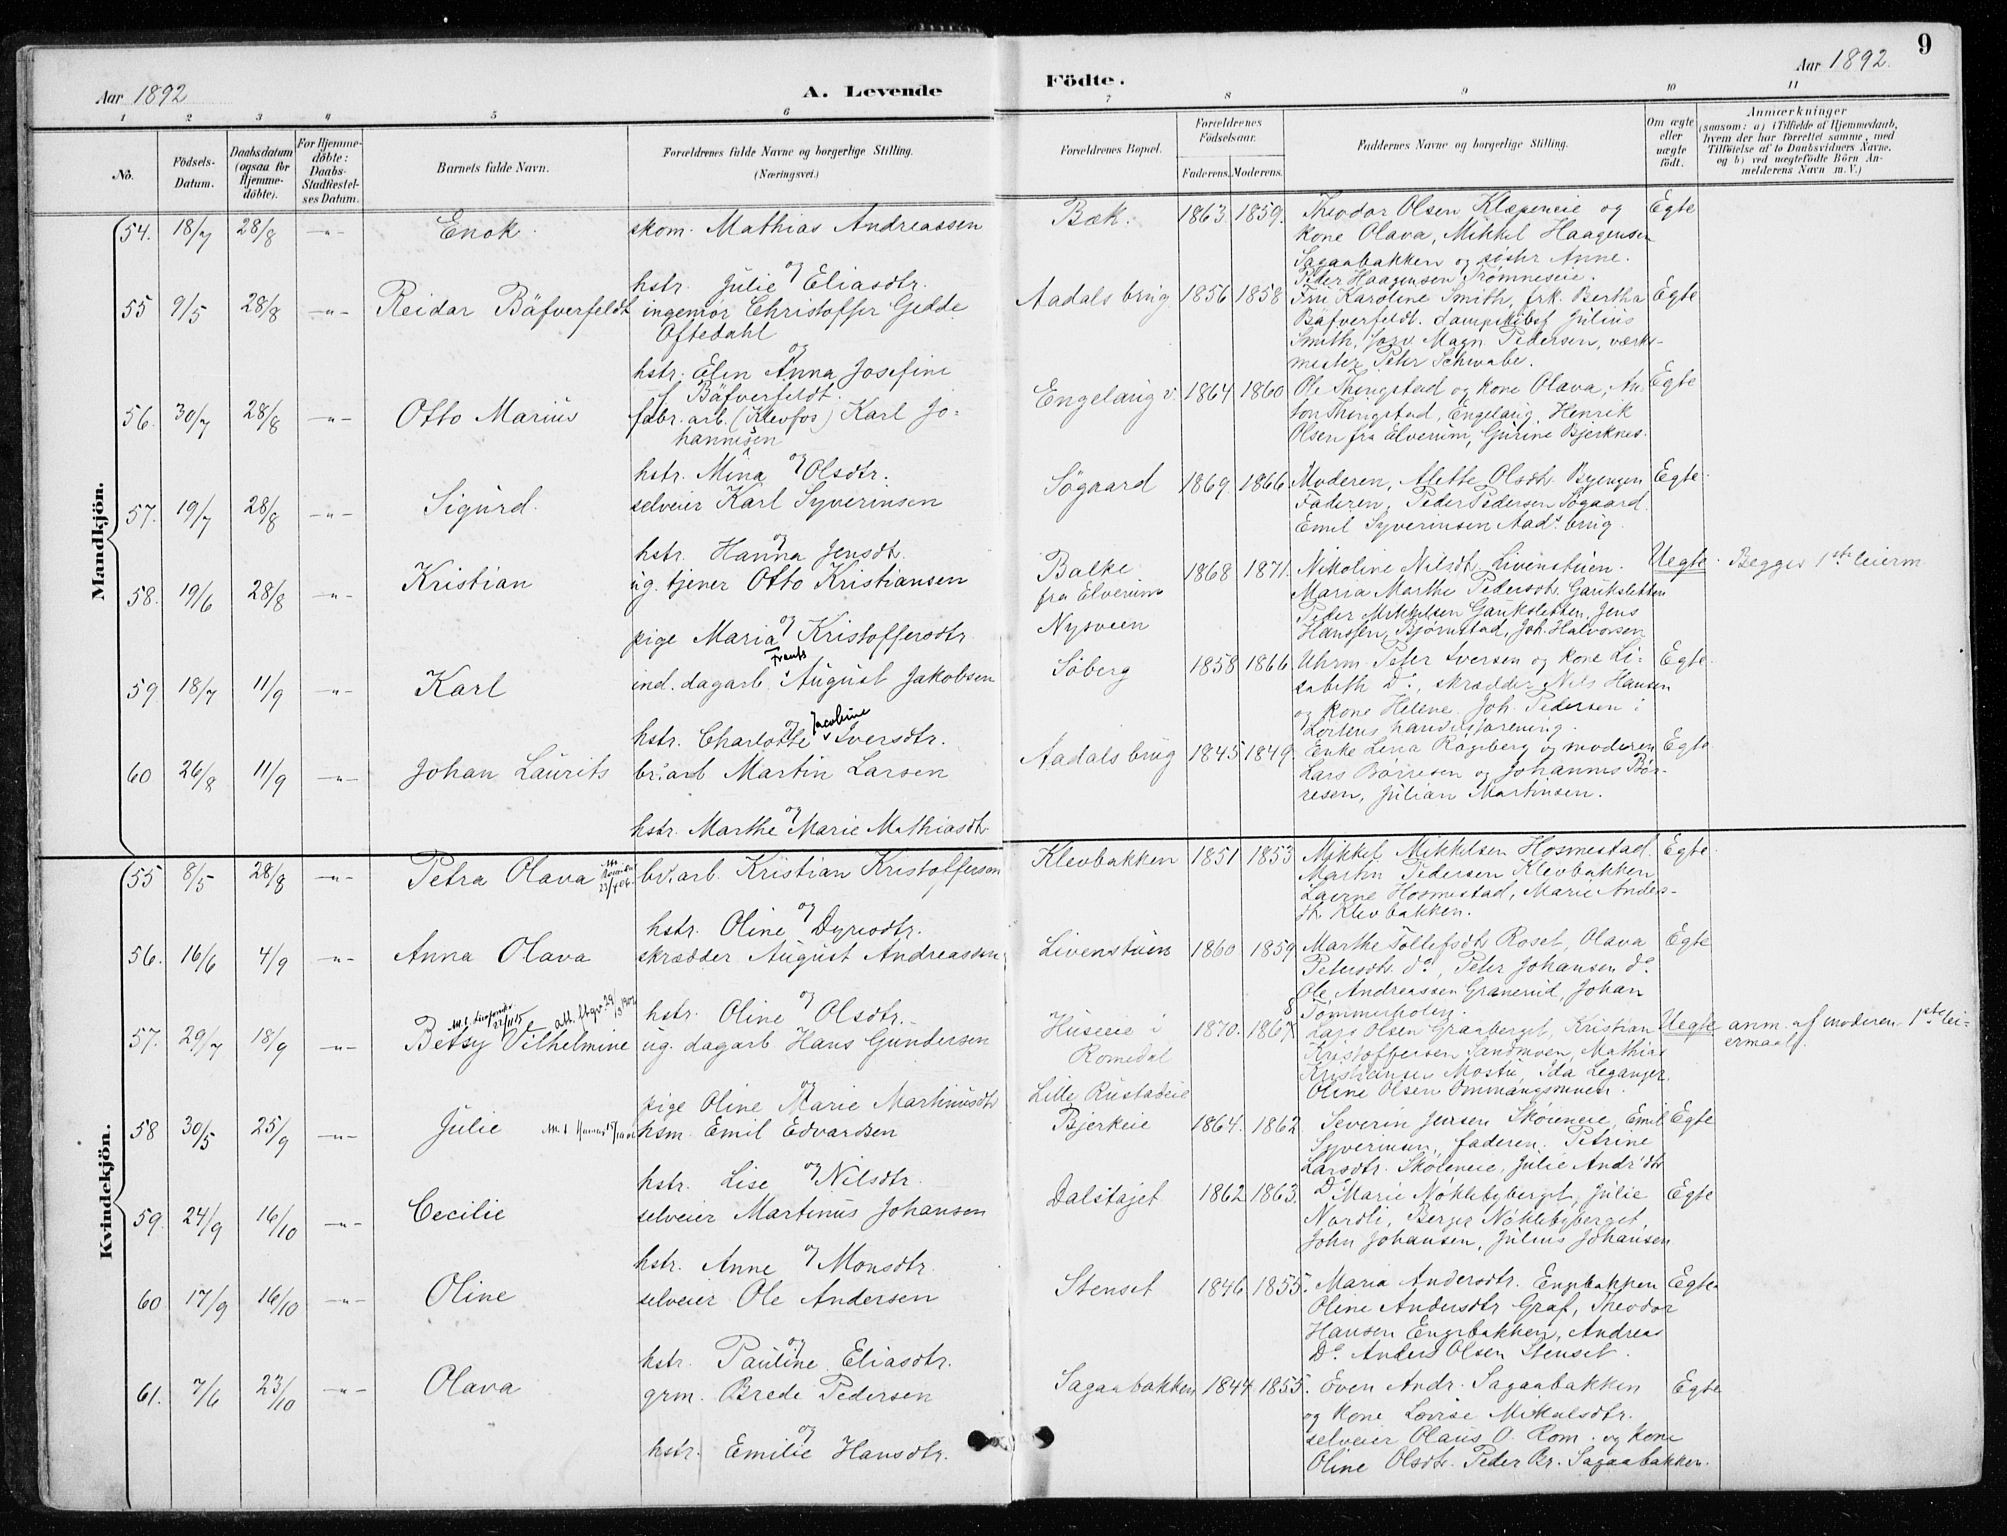 9
Aar 1892
A. Levende
Födte.
Aar 1892.
1 2 3 4 5 6 7 8 9 10 11
No.
Födsels-Datum.
Daabsdatum (ogsaa for Hjemmedøbte).
For Hjemmedøbte: Daabs-Stadfæstelses Datum.
Barnets fulde Navn.
Forældrenes fulde Navne og borgerlige Stilling.
(Næringsvei.)
Forældrenes Bopæl.
Forældrenes Födselsaar.
Faderens. Moderens.
Faddernes Navne og borgerlige Stilling.
Om ægte eller uægte födt.
Anmærkninger
(saasom: a) i Tilfælde af Hjemmedaab,
hvem der har forrettet samme, med
Tilføielse af to Daabsvidners Navne.
og b) ved uægtefödte Börn Anmelderens Navn m. V.)
Mandkjön.
54. 18/7 28/8 -"- Enok. skom. Mathias Andreassen
og
hstr. Julie Eliasdtr.
Bæk. 1863 1859. Theodor Olsen Klæpeneie og
kone Olava, Mikkel Haagensen
Sagaabakken og søster Anne.
Peder Haagensen Trømneseie.
Egte
55 9/5 28/8 -"- Reidar Bäfverfeldt ingeniør Christoffer Gedde
Oftedahl
og
hstr. Elen Anna Josefine
f. Bäfverfeldt.
Aadals brug 1856 1858 Fru Karoline Smith, frk. Bertha
Bäfverfeldt. Julius
Smith, Magn. Pedersen, værk-
mester Peter Schwabe.
Egte
56. 30/7 28/8 -"- Otto Marius fabr. arb. (Klevfos) Karl Jo-
hannesen
og
hstr. Mina Olsdtr.
Engelaug v. 1864 1860 Ole Thingstad og kone Olava, An-
ton Thingstad, Engelaug, Henrik
Olsen fra Elverum, Gurine Bjerknes.
Egte
57. 19/7 28/8 -"- Sigurd. selveier Karl Syverinsen
og
hstr. Hanna Jensdtr.
Søgaard 1869. 1866 Moderen, Alette Olsdtr. Byengen
Faderen, Peder Pedersen Søgaard.
Emil Syverinsen Aads brug.
Egte.
58. 19/6 28/8 -"- Kristian ug. tjener Otto Kristiansen
og
pige Maria Kristoffersdtr
Balke
fra Elverum
Nysveen
1868 1871. Nikoline Nilsdtr. Livenstuen.
Maria Marthe Pedersdtr. Gauksletten
Peder Mikkelsen Gauksletten, Jens
Hanssen, Bjørnstad, Joh. Halvorsen
Uegte. Begges 1ste leierm
59 18/7 11/9 -"- Karl ind. dagarb. Frants August Jakobsen
og Jacobine
hstr. Charlotte Iversdtr.
Søberg 1858 1866. Uhrm. Peter Iversen og kone Li-
sabeth Do, skrædder Nils Hansen
og kone Helene. Joh. Pedersen i
Løtens handelsforening.
Egte.
60 26/8 11/9 -"- Johan Laurits br. arb Martin Larsen
og
hstr. Marthe Marie Mathiasdtr
Aadals brug 1845 1849. Enke Lina Rogsberg og moderen
Lars Børresen og Johannes Bør-
resen, Julian Martinsen.
Egte
Kvindekjön.
55 8/5 28/8 -"- Petra Olava br. arb. Kristian Kristoffersen
og
hstr. Oline Dyresdtr.
Klevbakken 1851 1853 Mikkel Mikkelsen Hosmestad.
Martin Pedersen Klevbakken
Hosmestad, Marie Anders-
dtr. Klevbakken.
Egte.
56. 16/6 4/9 -"- Anna Olava skrædder August Andreassen
og
hstr. Oline Olsdtr.
Livenstuen 1860 1859 Marthe Tollefsdtr Roset, Olava
Petersdtr. do, Peter Johansen do.
Ole Andreassen Granerud, Johan
Tommerholen.
Egte
57. 29/7 18/9 -"- Betsy Vilhelmine ug. dagarb Hans Gundersen
og
pige Oline Marie Martinusdtr
Huseeie i
Romedal
Lille Rustadeie
1870. 1867 Lars Olsen Graaberget, Kristian
Kristoffersen Sandmoen, Mathias
Kristiansen Mostu, Ida Leganger.
Oline Olsen Ommangsmoen.
Uegte anm. af moderen. 1ste lei-
ermaal.
58 30/5 25/9 -"- Julie hsm. Emil Edvardsen
og
hstr. Lise Nilsdtr.
Bjerkeie 1864. 1862 Severin Jensen Skoieneie, Emil
Syverinsen, faderen. Petrine
Larsdtr. Skøieneie, Julie Andr'dtr
Do
Egte
59. 24/9 16/10 -"- Cecilie selveier Martinus Johansen
og
hstr. Anne Monsdtr.
Dalstøjet 1862 1863. Marie Nøklebyberget, Julie
Nordli, Berger Nøklebyberget,
John Johansen, Julius Johansen
Egte
60 17/9 16/10 -"- Oline selveier Ole Andersen
og
hstr. Pauline Eliasdtr.
Stenset 1846 1855. Maria Andersdtr. Engebakken
Oline Andersdtr Graf, Theodor
Hansen Engebakken, Andreas
Do Anders Olsen Stenset.
Egte
61. 7/6 23/10 -"- Olava grm. Brede Pedersen
og
hstr. Emilie Hansdtr.
Sagaabakken 1844 1855. Even Andr. Sagaabakken
og kone Lovise Mikkelsdtr.
selveier Olaus O. Kom. og kone
Oline Olsdtr. Peder Br. Sagaabakken.
Egte